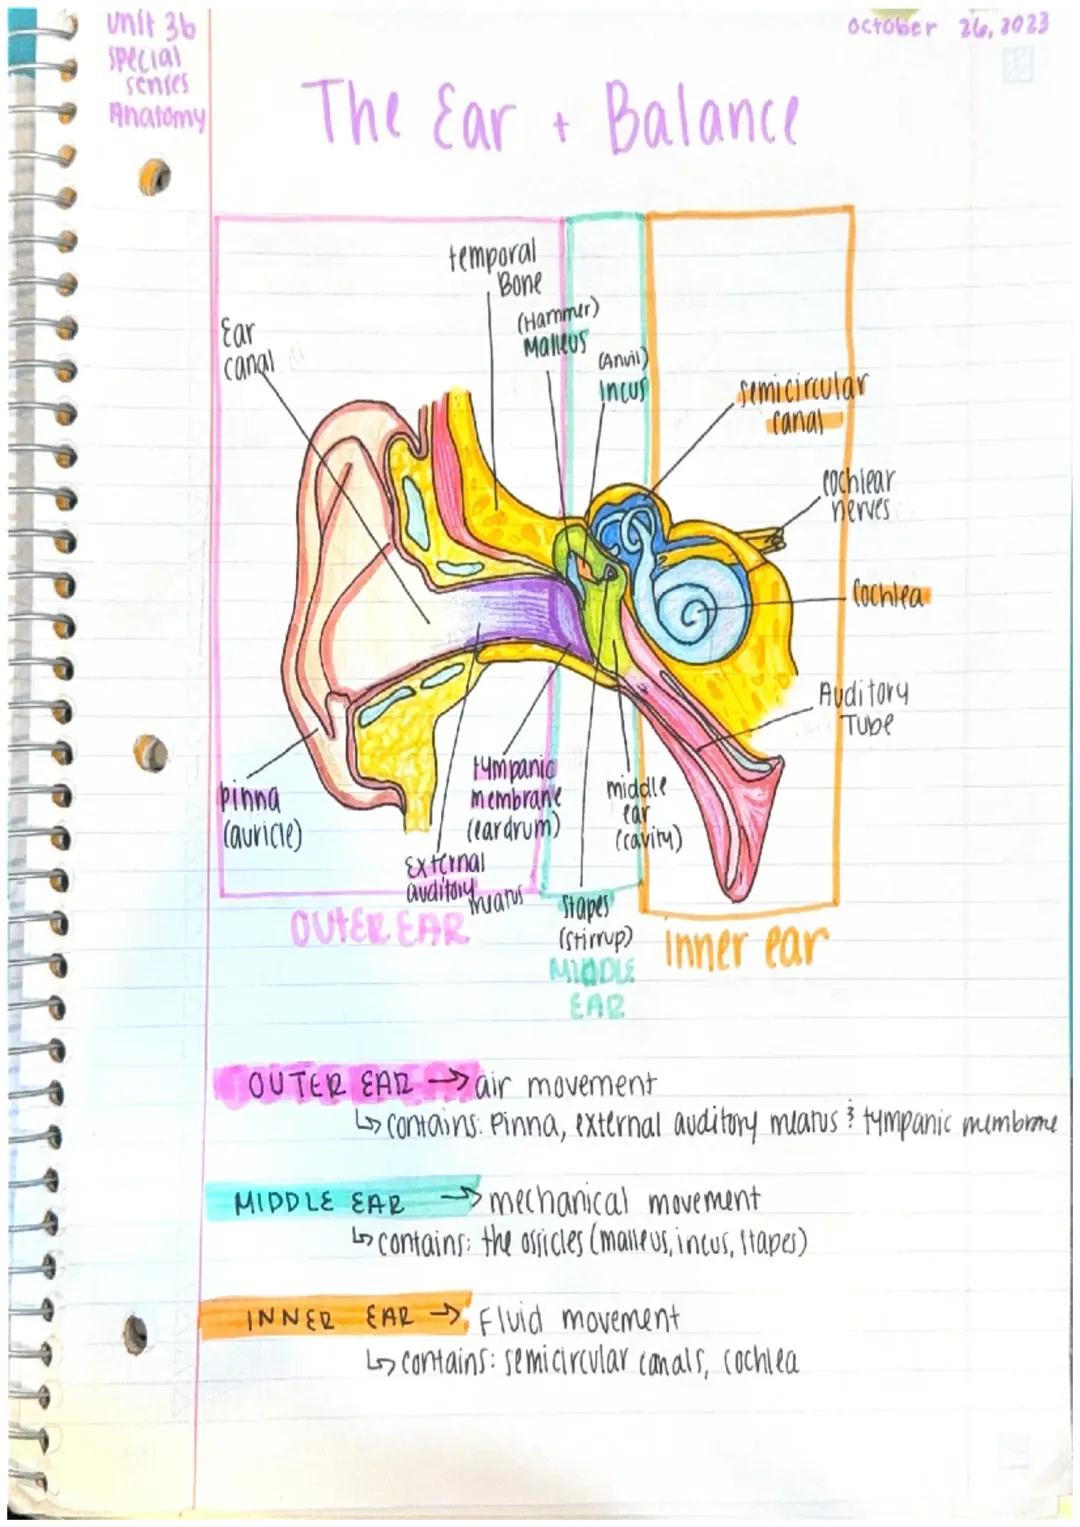 Unit 3b
special
senses
Anatomy
October 26, 2023
The Ear + Balance
temporal
Bone
(Hammer)
Malleus
(Anvil)
Incus
Ear
canal
semicircular
canal
cochlear
nerves
Cochlea
Auditory
Tube
pinna
(auricle)
tympanic
membrane
(eardrum)
middle
ear
(cavity)
External
auditory
meatus
Stapes
(stirrup)
OUTER EAR
MIDDLE
EAR
Inner ear
OUTER EAR → air movement
↳ contains: Pinna, external auditory meatus & tympanic membrane
MIDDLE EAR → mechanical movement
↳ contains: the ossicles (malleus, incus, stapes)
INNER EAR → Fluid movement
↳ contains: semicircular canals, cochlea